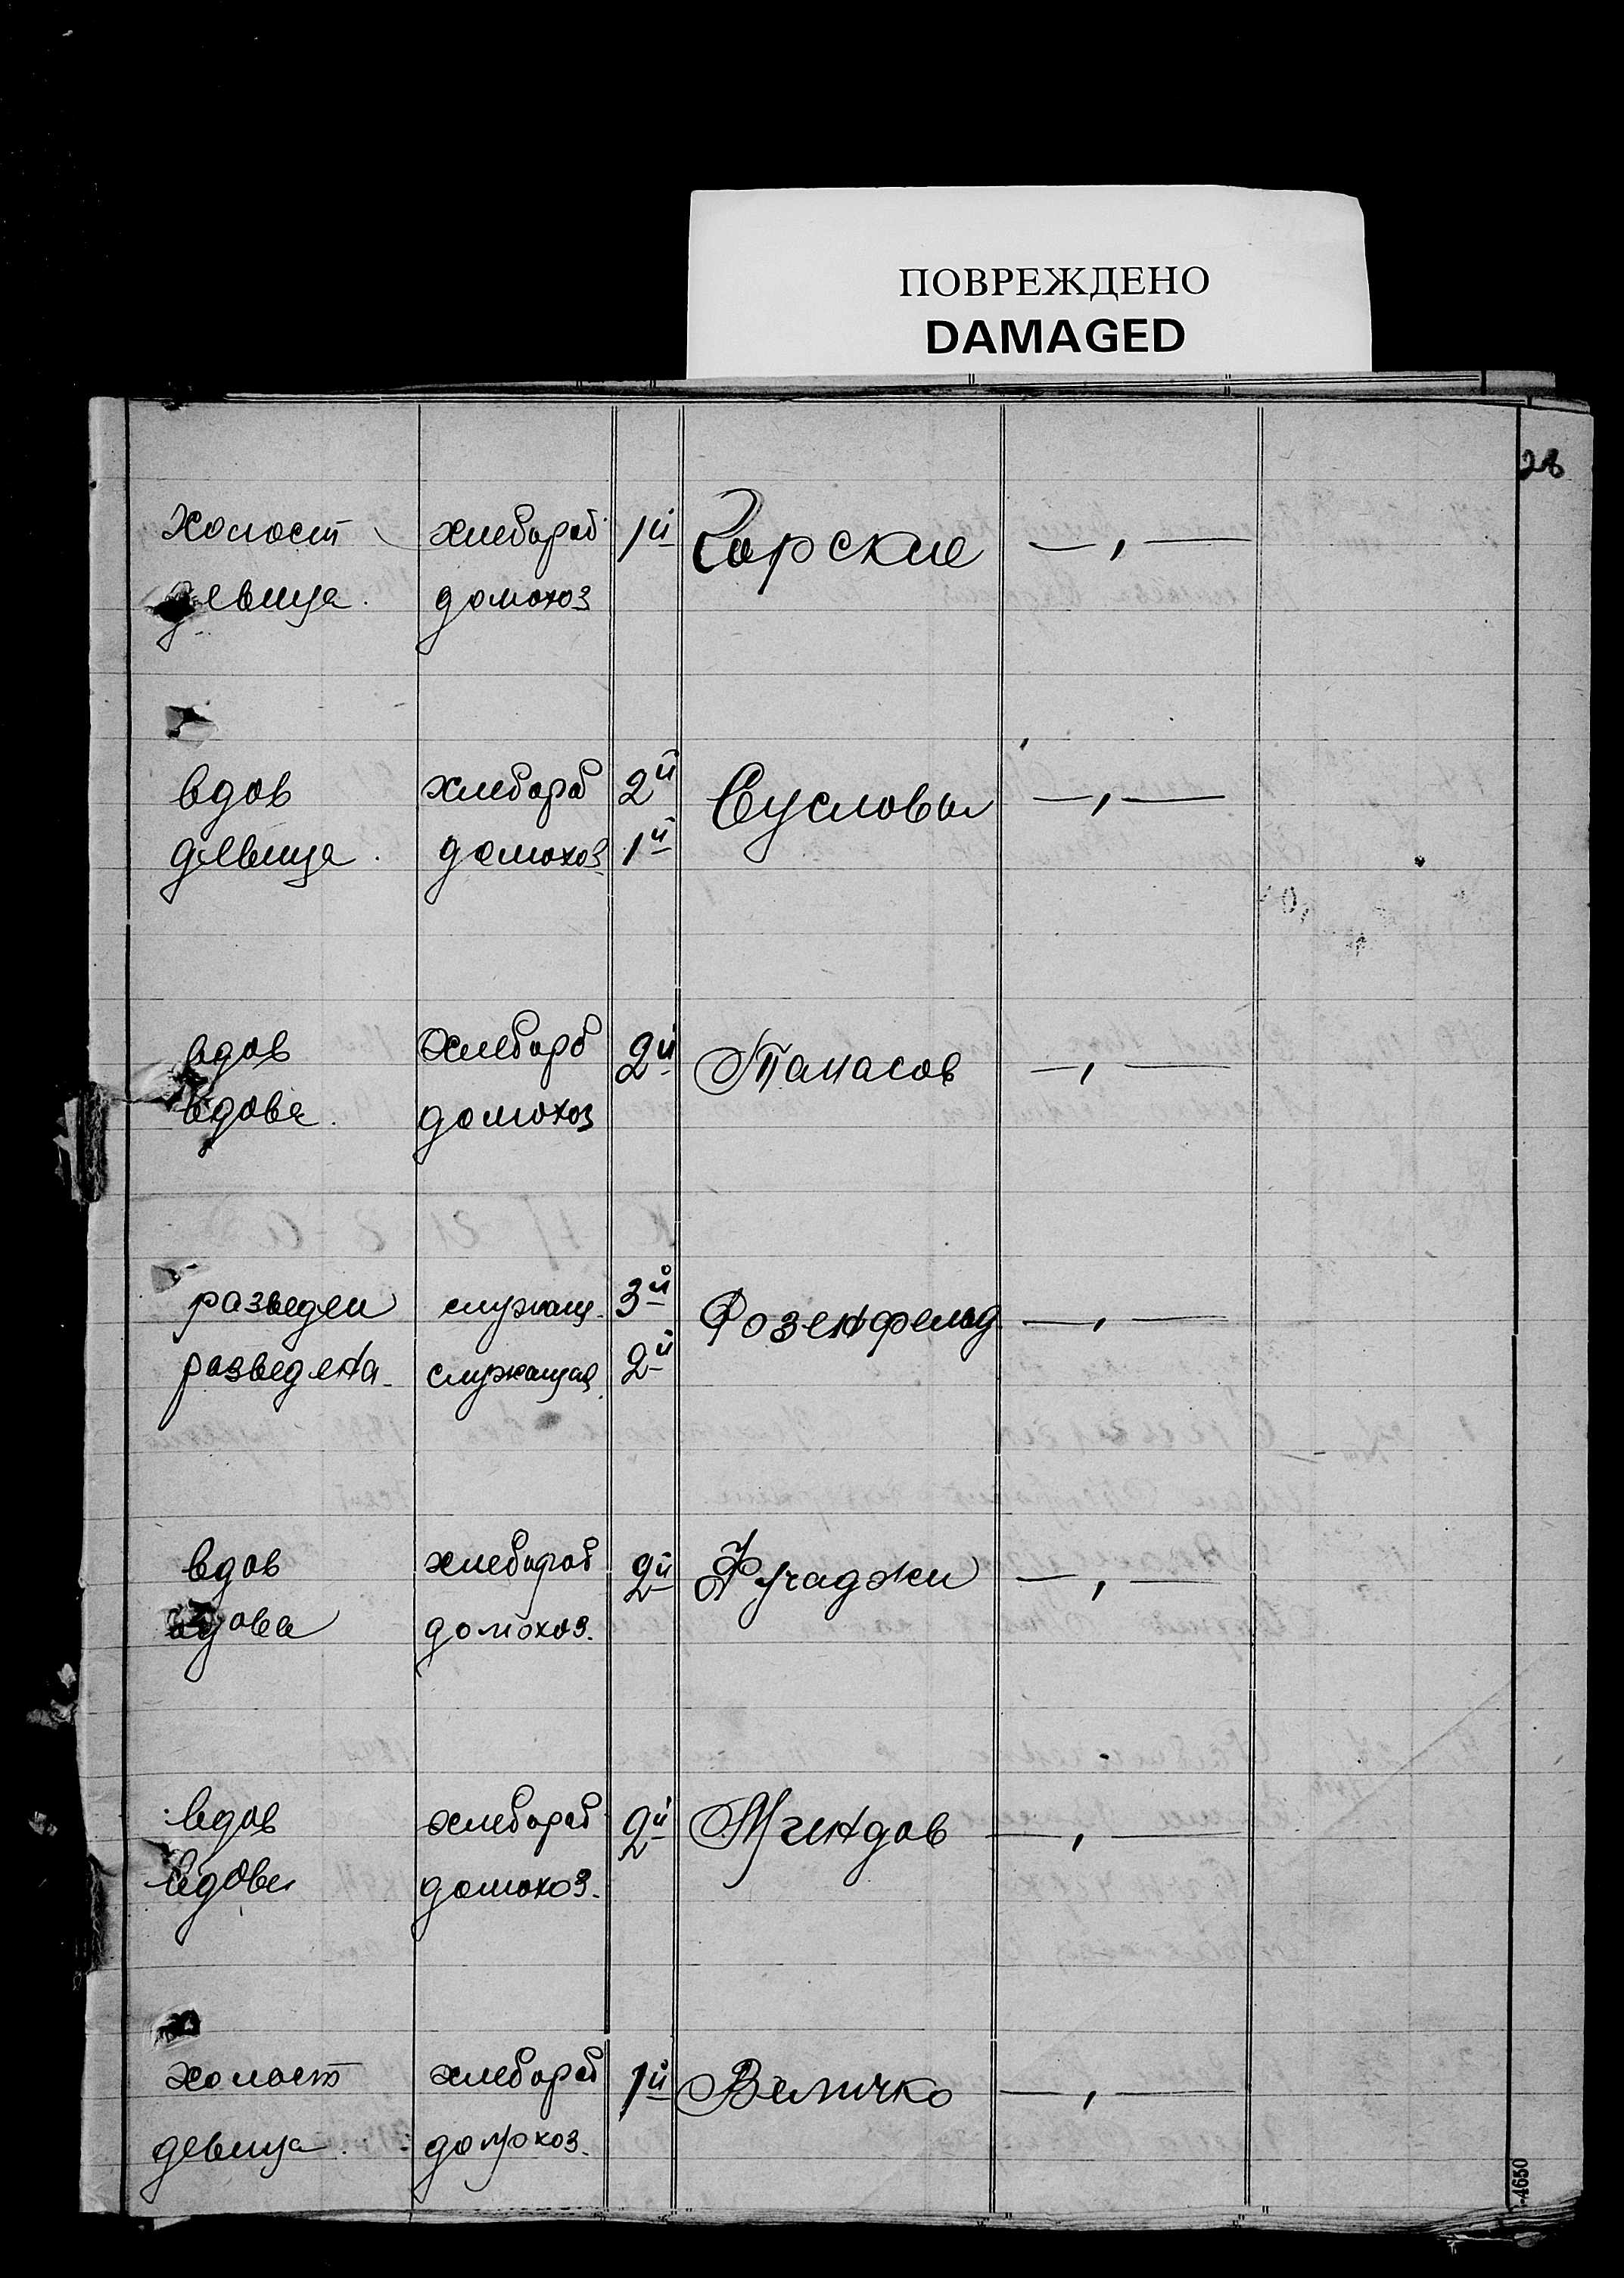 ПОВРЕЖДЕНО
DAMAGED
28
холост хлебороб 1й Чорские — , —
девица. домохоз
вдов хлебороб 2й Сусловы — , —
девица. домохоз. 1й
вдов хлебороб 2й Танасов — , —
вдова. домохоз
разведен служащ. 3й Розенфельд — , —
разведена служащая 2й
вдов хлебороб 2й Кучаджи — , —
вдова домохоз.
вдов хлебороб 2й — , —
вдова домохоз.
холост хлебороб 1й Величко — , —
девица. домохоз.
-4650